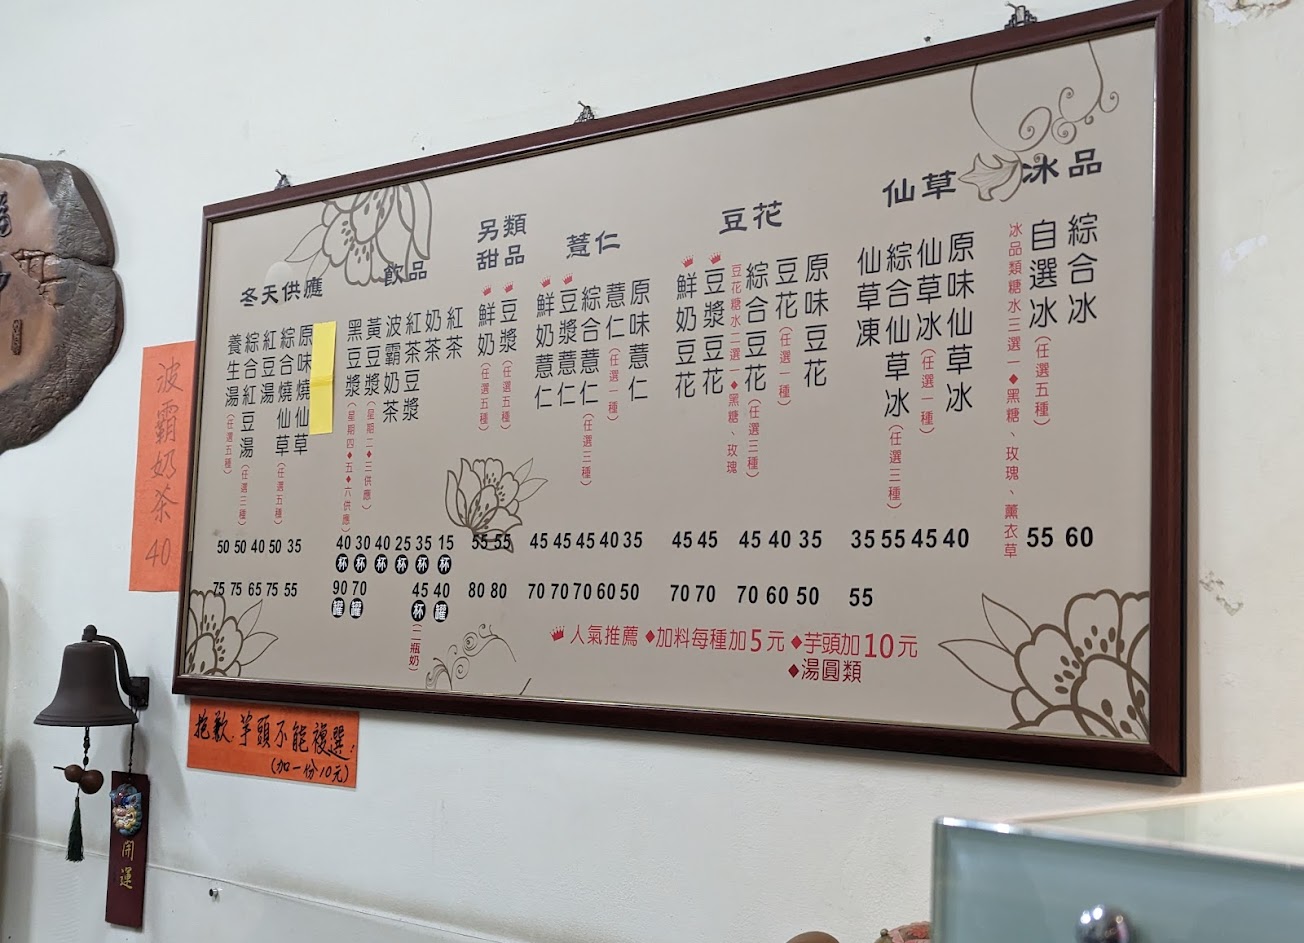 冰品
綜合冰 60
自選冰(任選五種) 55
冰品類糖水三選一◆黑糖、玫瑰、薰衣草
仙草
原味仙草冰 40
仙草冰(任選一種) 45
綜合仙草冰(任選三種) 55
仙草凍 35 55
豆花
原味豆花 35 50
豆花(任選一種) 40 60
綜合豆花(任選三種) 45 70
豆花糖水二選一◆黑糖、玫瑰
豆漿豆花 45 70
鮮奶豆花 45 70
薏仁
原味薏仁 35 50
薏仁(任選一種) 40 60
綜合薏仁(任選三種) 45 70
豆漿薏仁 45 70
鮮奶薏仁 45 70
另類
甜品
豆漿(任選五種) 55 80
鮮奶(任選五種) 55 80
飲品
紅茶 15杯 40罐
奶茶 35杯 45杯(二瓶奶)
紅茶豆漿 25杯
波霸奶茶 40杯
黃豆漿(星期二◆三供應) 30杯 70罐
黑豆漿(星期四◆五◆六供應) 40杯 90罐
冬天供應
原味燒仙草 35 55
綜合燒仙草(任選五種) 50 75
紅豆湯 40 65
綜合紅豆湯(任選三種) 50 75
養生湯(任選五種) 50 75
人氣推薦 ◆加料每種加5元 ◆芋頭加10元
◆湯圓類
波霸奶茶 40
抱歉.芋頭不能複選!
(加一份10元)
開運